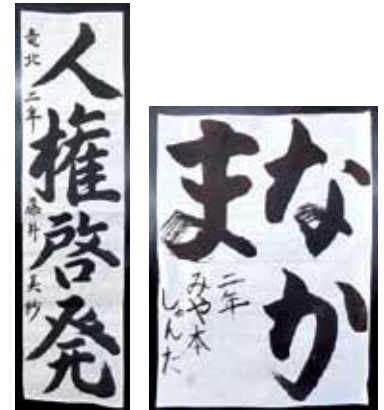 人権啓発
竜北 二年 藤井 美妙
なか
ま
二年
みや本
しゅんた